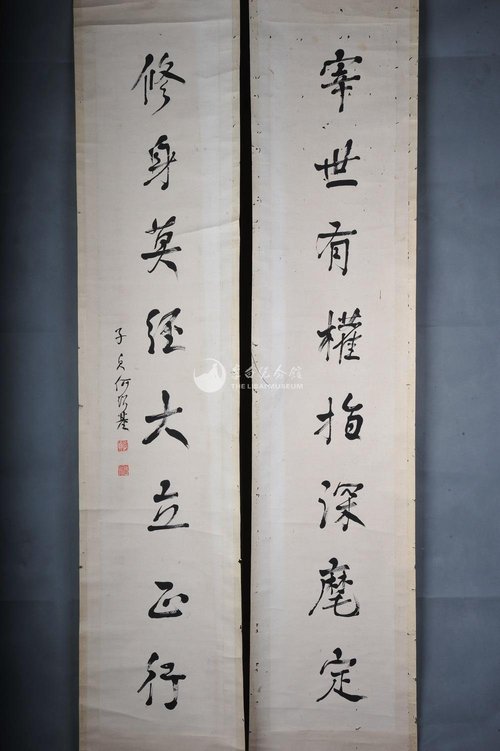 宰世有權指深麾定
修身莫經大立正行
子貞何紹基
李白纪念館
THE LIBAI MUSEUM